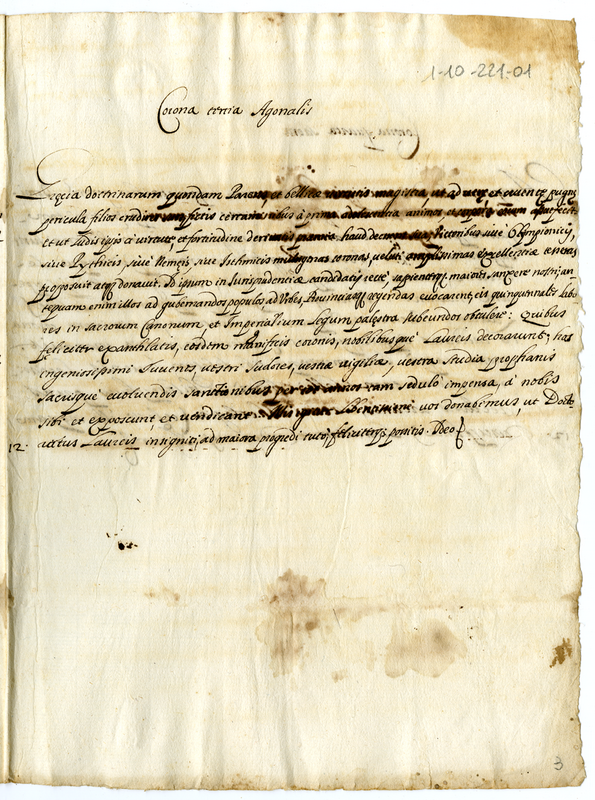 1-10-221-01
Corona tertia Agonalis
Gręcia doctrinarum quondam Parens, et bellicę virtutis magistra, ut ad veręet
pericula filios erudiret a prima adolescentia animos
et ut Ludis ipsis a virtute, et fortitudine haud Victoribus sive Olympionicis,
sive Pythicis, sive Nemeis, sive Isthmicis coronas, veluti amplissimas excellentiæ
proposuit atq donavit. Id ipsum in Iurisprudentiæ candidatis recte, sapienterq maiores nostri, an-
tequam enim illos ad gubernandos populos, ad Urbes, Provinciasq regendas evocarent, eis quinquennales labo
res in sacrorum Canonum, et Imperialium Legum palęstra subeundos obtulere: Quibus
feliciter exanthlatis, eosdem coronis, nobilibusque Laureis decorarunt, has
ingeniosissimi Iuvenes, vestri sudores, vestræ vigiliæ, vestra studia profanis
sacrisque evolvendis Sanctionibus per tam sedulo impensa, à nobis
sibi et exposcunt, et vendicant. libentissime vos donabimus, ut Docto
12. insigniti, ad maiora progredi tuto, feliciterq possitis. Deo
3